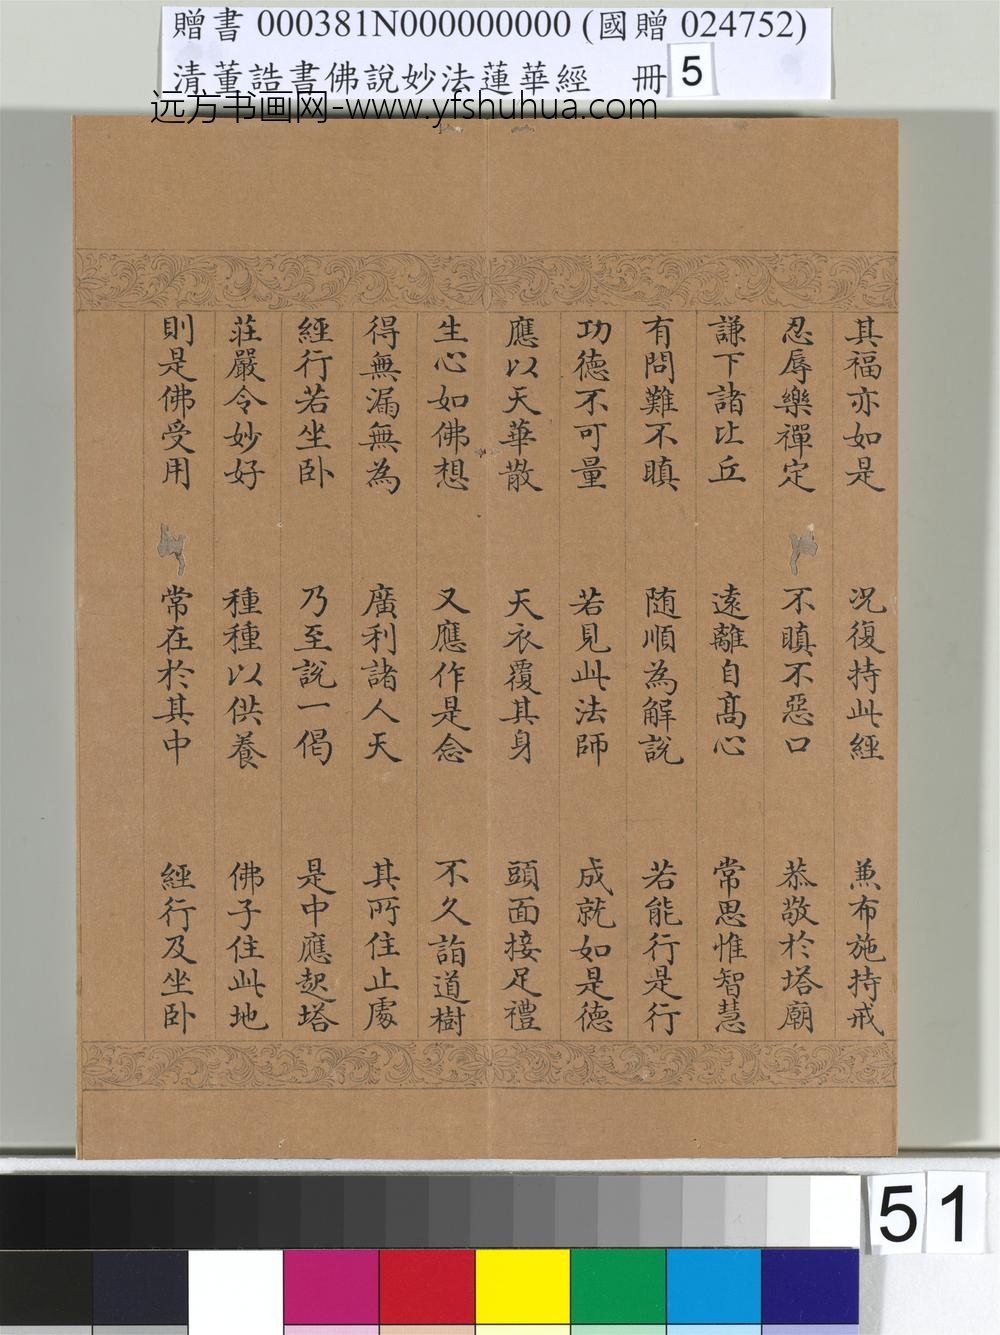 贈書 000381N000000000 (國贈 024752)
清董誥書佛說妙法蓮華經 冊 5
远方书画网-www.yfshuhua.com
其福亦如是 況復持此經 兼布施持戒
忍辱樂禪定 不瞋不惡口 恭敬於塔廟
謙下諸比丘 遠離自高心 常思惟智慧
有問難不瞋 随順為解說 若能行是行
功德不可量 若見此法師 成就如是德
應以天華散 天衣覆其身 頭面接足禮
生心如佛想 又應作是念 不久詣道樹
得無漏無為 廣利諸人天 其所住止處
經行若坐卧 乃至說一偈 是中應起塔
莊嚴令妙好 種種以供養 佛子住此地
則是佛受用 常在於其中 經行及坐卧
51